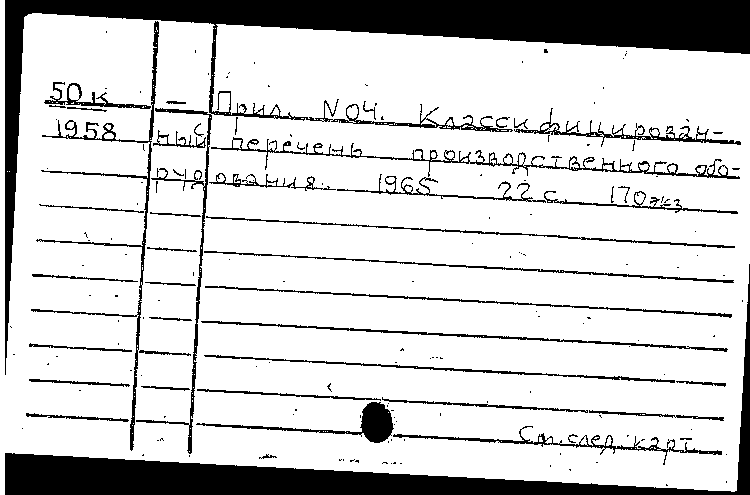 50к – Прил. N 04. Классифицирован-
1958 ный перечень производственного обо-
рудования. 1965 22 с. 170 экз.
См. след. карт.